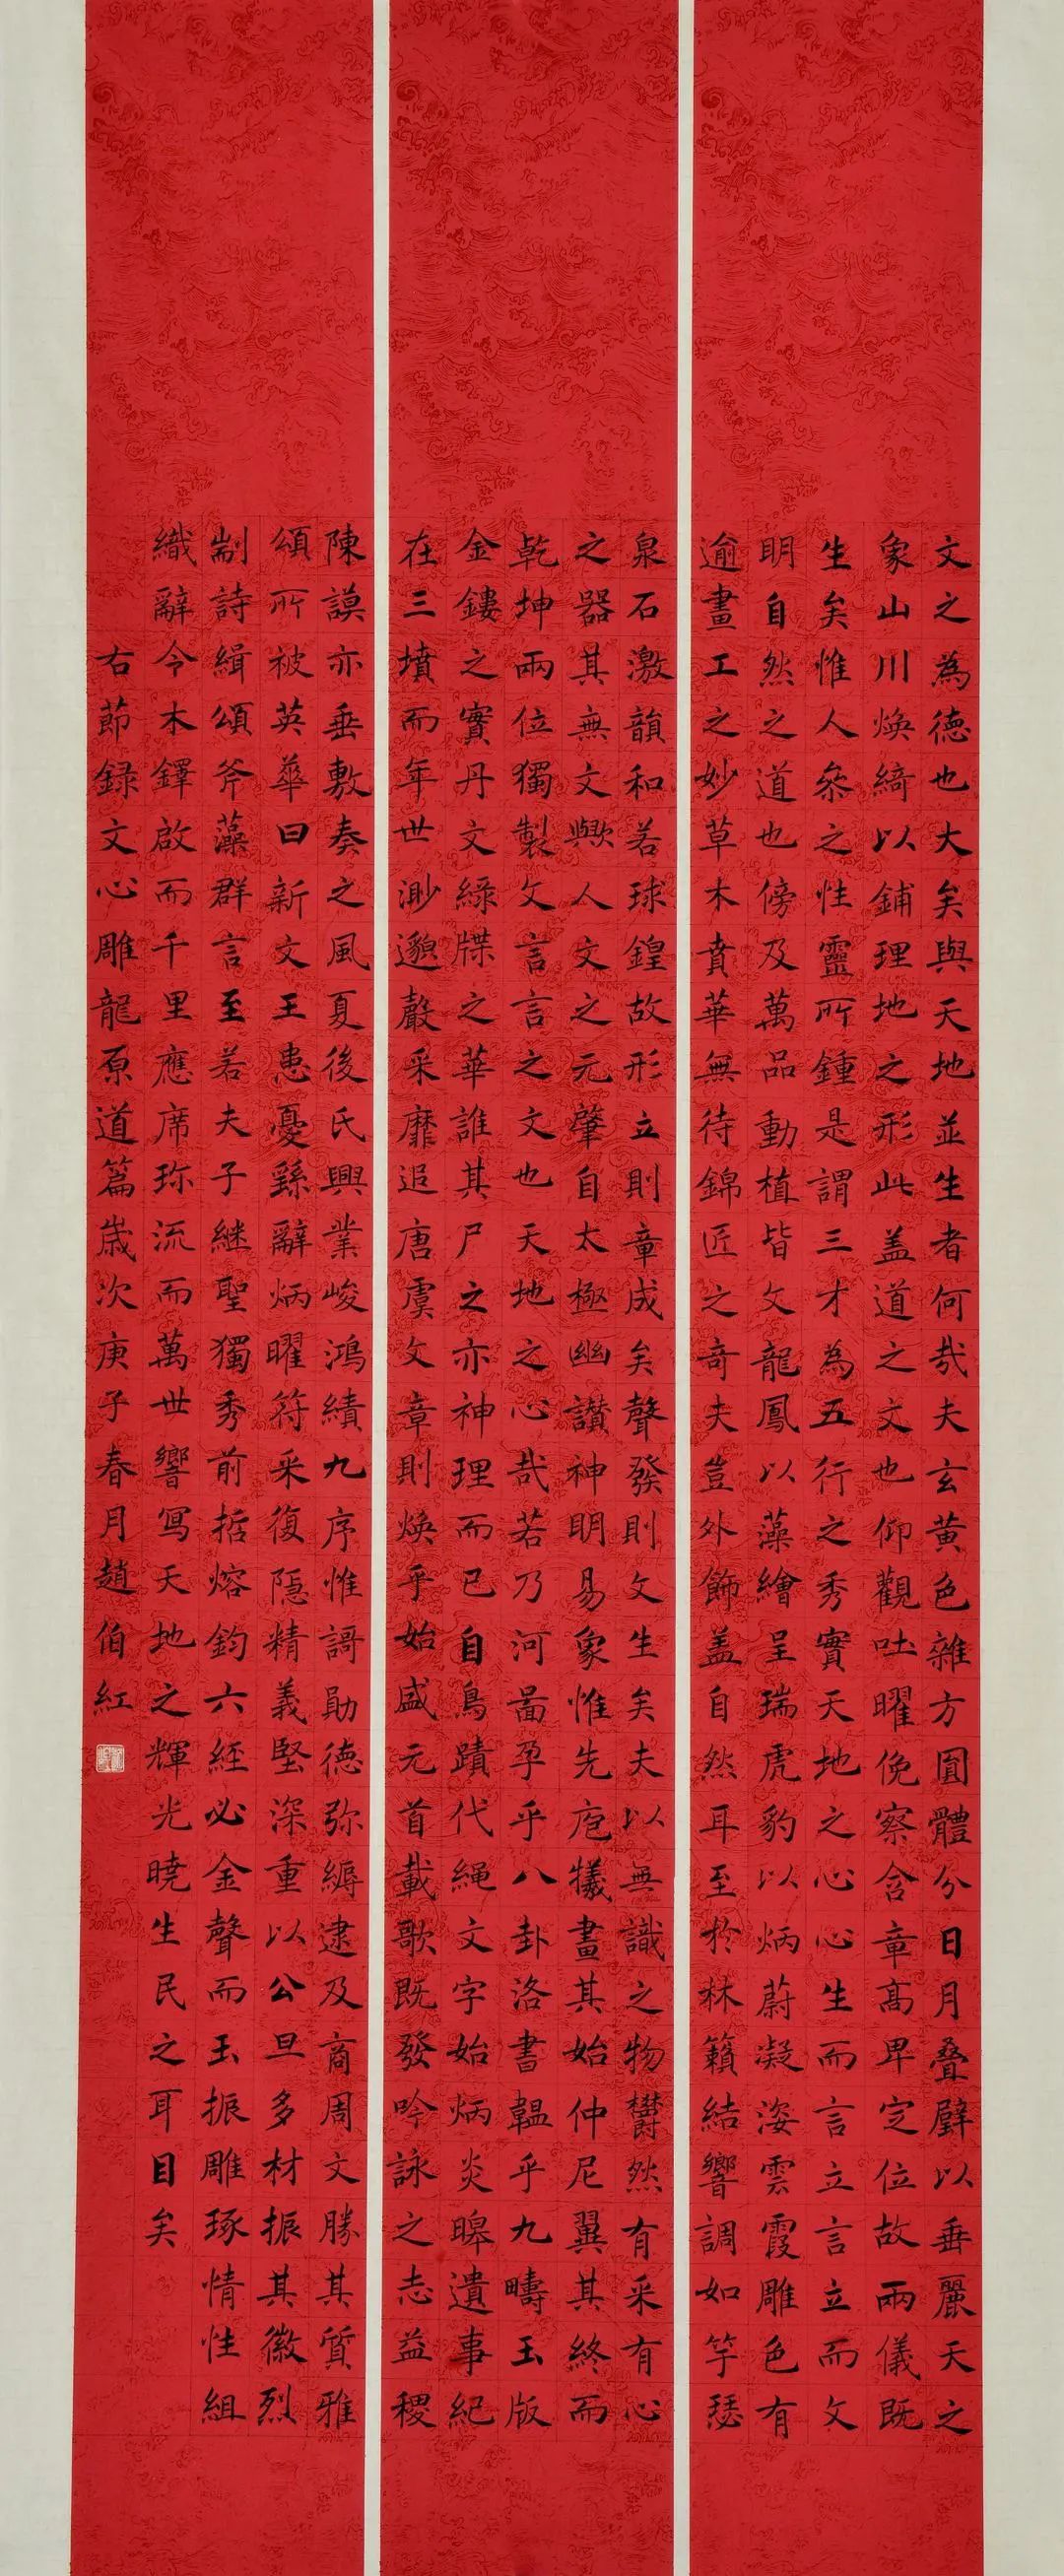 文之為德也大矣與天地並生者何哉夫玄黄色雜方圓體分日月叠璧以垂麗天之
象山川煥綺以鋪理地之形此盖道之文也仰觀吐曜俛察含章髙卑定位故兩儀既
生矣惟人叅之性靈所鍾是謂三才為五行之秀實天地之心心生而言立言立而文
明自然之道也傍及萬品動植皆文龍鳳以藻繪呈瑞虎豹以炳蔚凝姿雲霞雕色有
逾畫工之妙草木賁華無待錦匠之奇夫豈外飾盖自然耳至於林籟結響調如竽瑟
泉石激韻和若球鍠故形立則章成矣聲發則文生矣夫以無識之物欝然有采有心
之器其無文歟人文之元肇自太極幽讃神明易象惟先庖犧畫其始仲尼翼其終而
乾坤兩位獨製文言言之文也天地之心哉若乃河啚孕乎八卦洛書韞乎九疇玉版
金鏤之實丹文緑牒之華誰其尸之亦神理而已自鳥蹟代繩文字始炳炎皞遺事紀
在三墳而年世渺邈聲采靡追唐虞文章則煥乎始盛元首載歌既發吟詠之志益稷
陳謨亦垂敷奏之風夏後氏興業峻鴻績九序惟謌勛德弥縟逮及商周文勝其質雅
頌所被英華日新文王患憂繇辭炳曜符采復隱精義堅深重以公旦多材振其徽烈
剬詩緝頌斧藻群言至若夫子継聖獨秀前哲熔鈞六經必金聲而玉振雕琢情性組
織辭令木鐸啟而千里應席珎流而萬世響寫天地之輝光曉生民之耳目矣
右節録文心雕龍原道篇歲次庚子春月趙伯紅